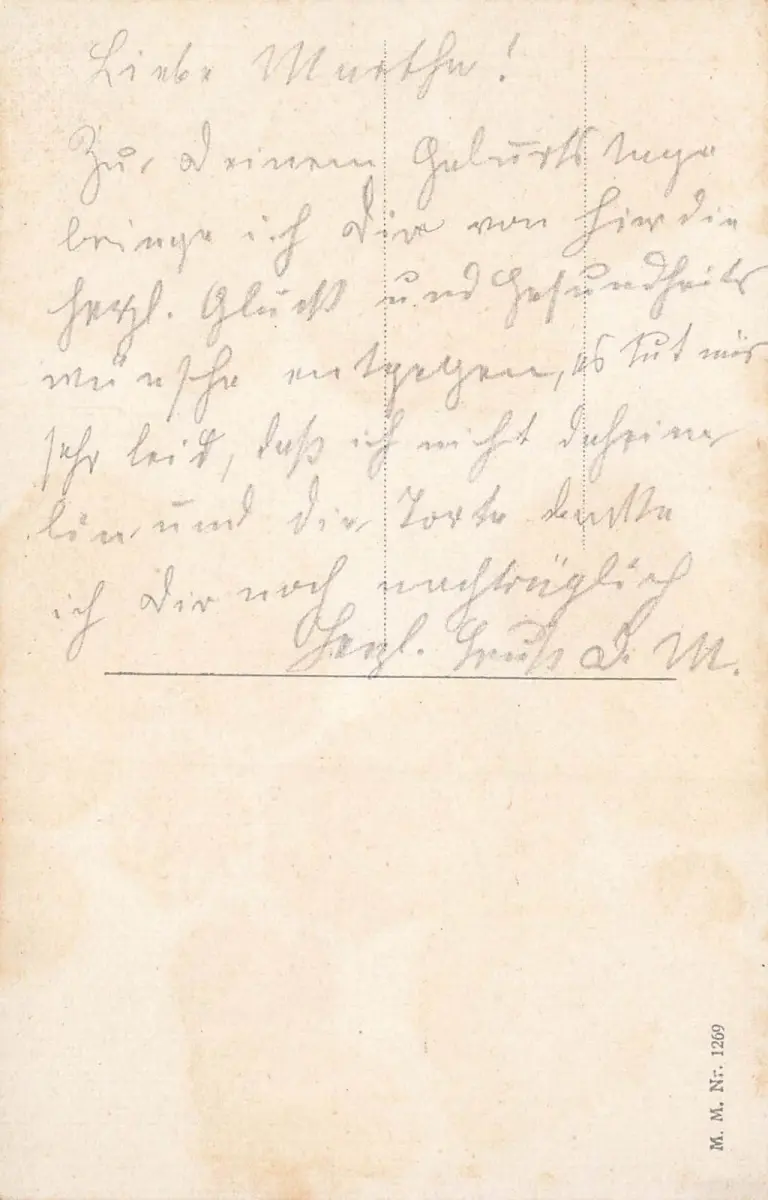 Liebe Martha!
Zu Deinem Geburtstage
bringe ich Dir von hier die
herzl. Glück und Gesundheits
wünsche entgegen, es tut mir
sehr leid, daß ich nicht daheim
bin und die Torte
ich Dir noch nachträglich
Herzl. Gruß D. M.
M. M. Nr. 1269